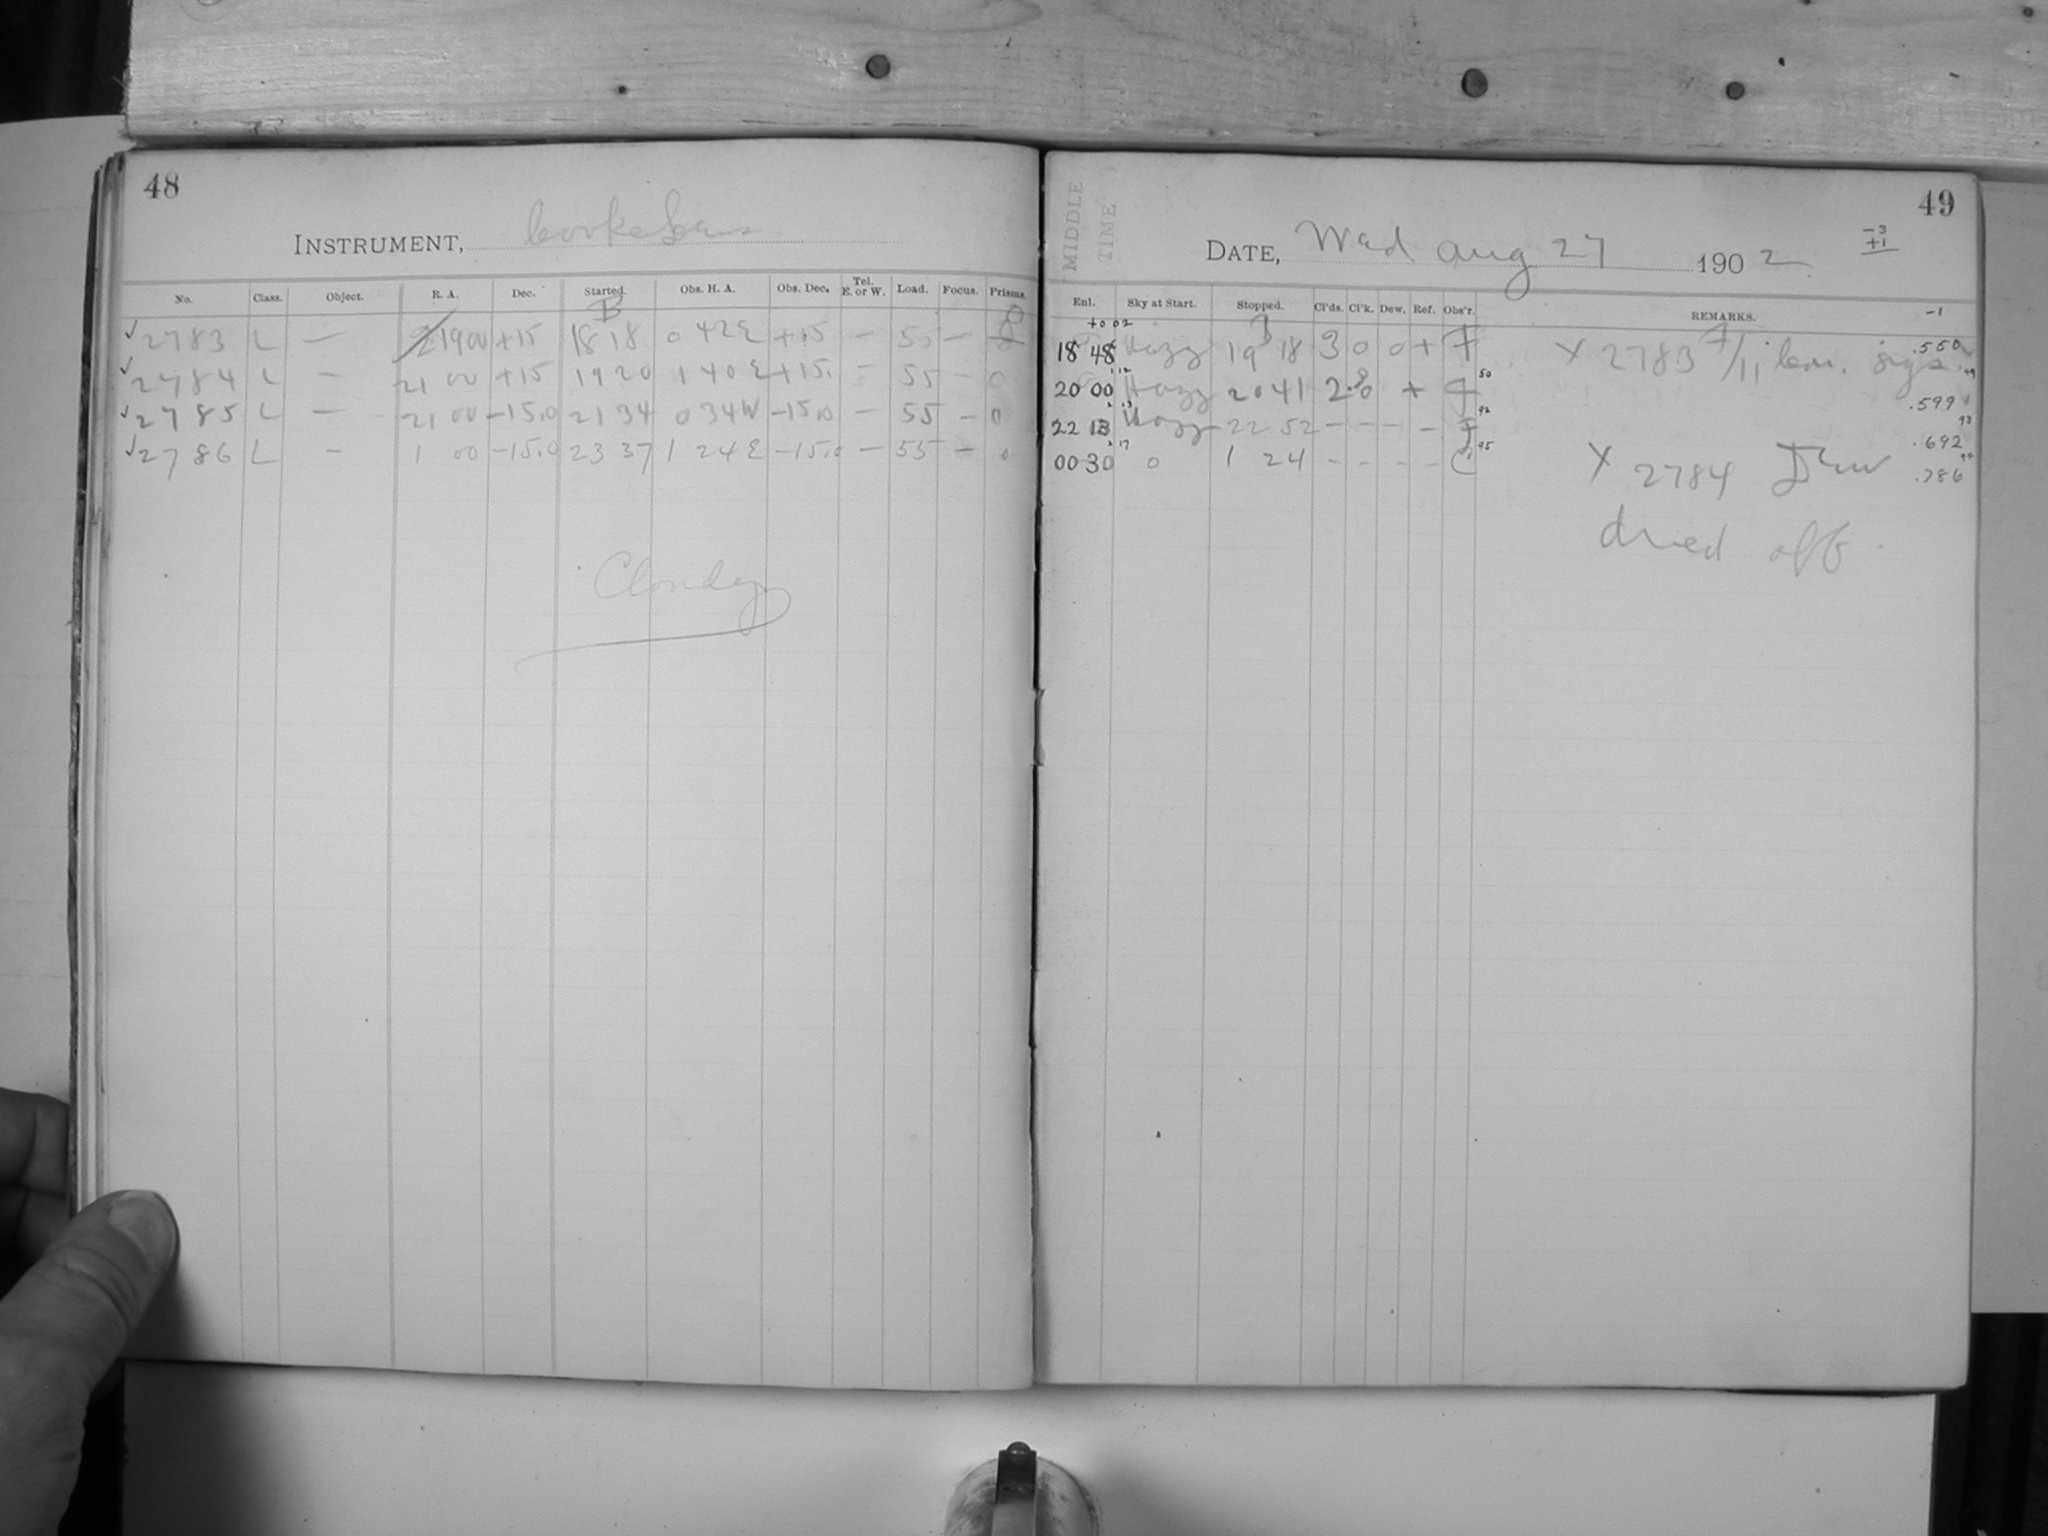 48
INSTRUMENT, Cooke Lens
No. Class. Object. R. A. Dec. Started. Obs. H. A. Obs. Dec. Tel. E. or W. Load. Focus. Prisms.
B
✓2783 L — 19 00 +15 18 18 0 42 E +15 — 55 — 0
✓2784 L — 21 00 +15 19 20 1 40 E +15. — 55 — 0
✓2785 L — 21 00 -15.0 21 34 0 34 W -15.0 — 55 — 0
✓2786 L — 1 00 -15.0 23 37 1 24 E -15.0 — 55 — 0
Cloudy
MIDDLE TIME
49
DATE, Wed Aug 27 1902
-3
+1
Enl. Sky at Start. Stopped. Cl'ds. Cl'k. Dew. Ref. Obs'r. REMARKS. -1
+0 02
18 48 Hazy 19 18 3 0 0 + F X 2783 .550
1 12 50 49
20 00 Hazy 20 41 2 + F .599
2 13 92 93
22 13 Hazy 22 52 - - - - F .692
2 17 95 94
00 30 0 1 24 - - - - C X 2784 Dew .786
dried off